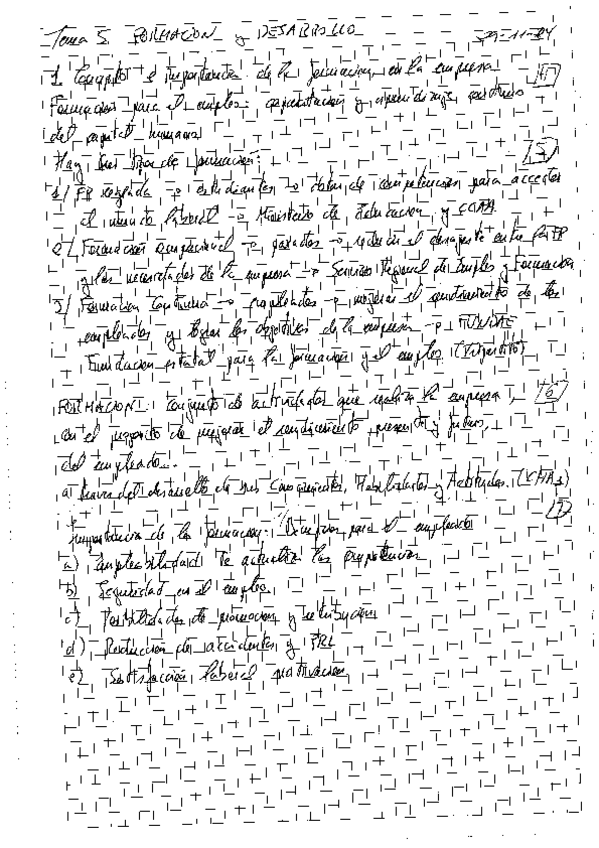 Tema 5. FORMACION y DESARROLLO 29-11-24
1. Concepto e importancia de la formacion en la empresa
Formacion para el empleo: capacitación y aprendizaje continuo
del capital humano
Hay tres tipos de formacion:
1/ FP reglada → estudiantes → dotar de competencias para acceder
al mundo laboral → Ministerio de Educacion y CCAA
2/ Formación ocupacional → parados → reducir el desajuste entre la FP
y las necesidades de la empresa → Servicio Regional de Empleo y Formacion
3/ Formacion Continua → empleados → mejorar el rendimiento de los
empleados y lograr los objetivos de la empresa → FUNDAE
Fundacion estatal para la formación y el empleo (tripartito)
FORMACION: conjunto de actividades que realiza la empresa, 6
con el proposito de mejorar el rendimiento, presente y futuro,
del empleado...
a traves del desarrollo de sus Conocimientos, Habilidades y Actitudes.
7
Importancia de la formacion: para el empleado
a) Empleabilidad: Te actualiza las competencias
b) Seguridad en el empleo
c) Posibilidades de promocion y
d) Reducción de accidentes y PRL
e) Satisfacción laboral motivación